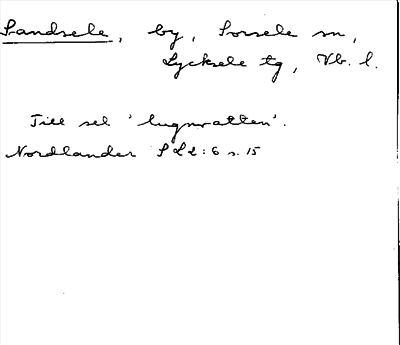 Sandsele, by, Sorsele sn,
Lycksele tg, Vb. l.
Till sel 'lugnvatten'.
Nordlander SL 2:6 s. 15